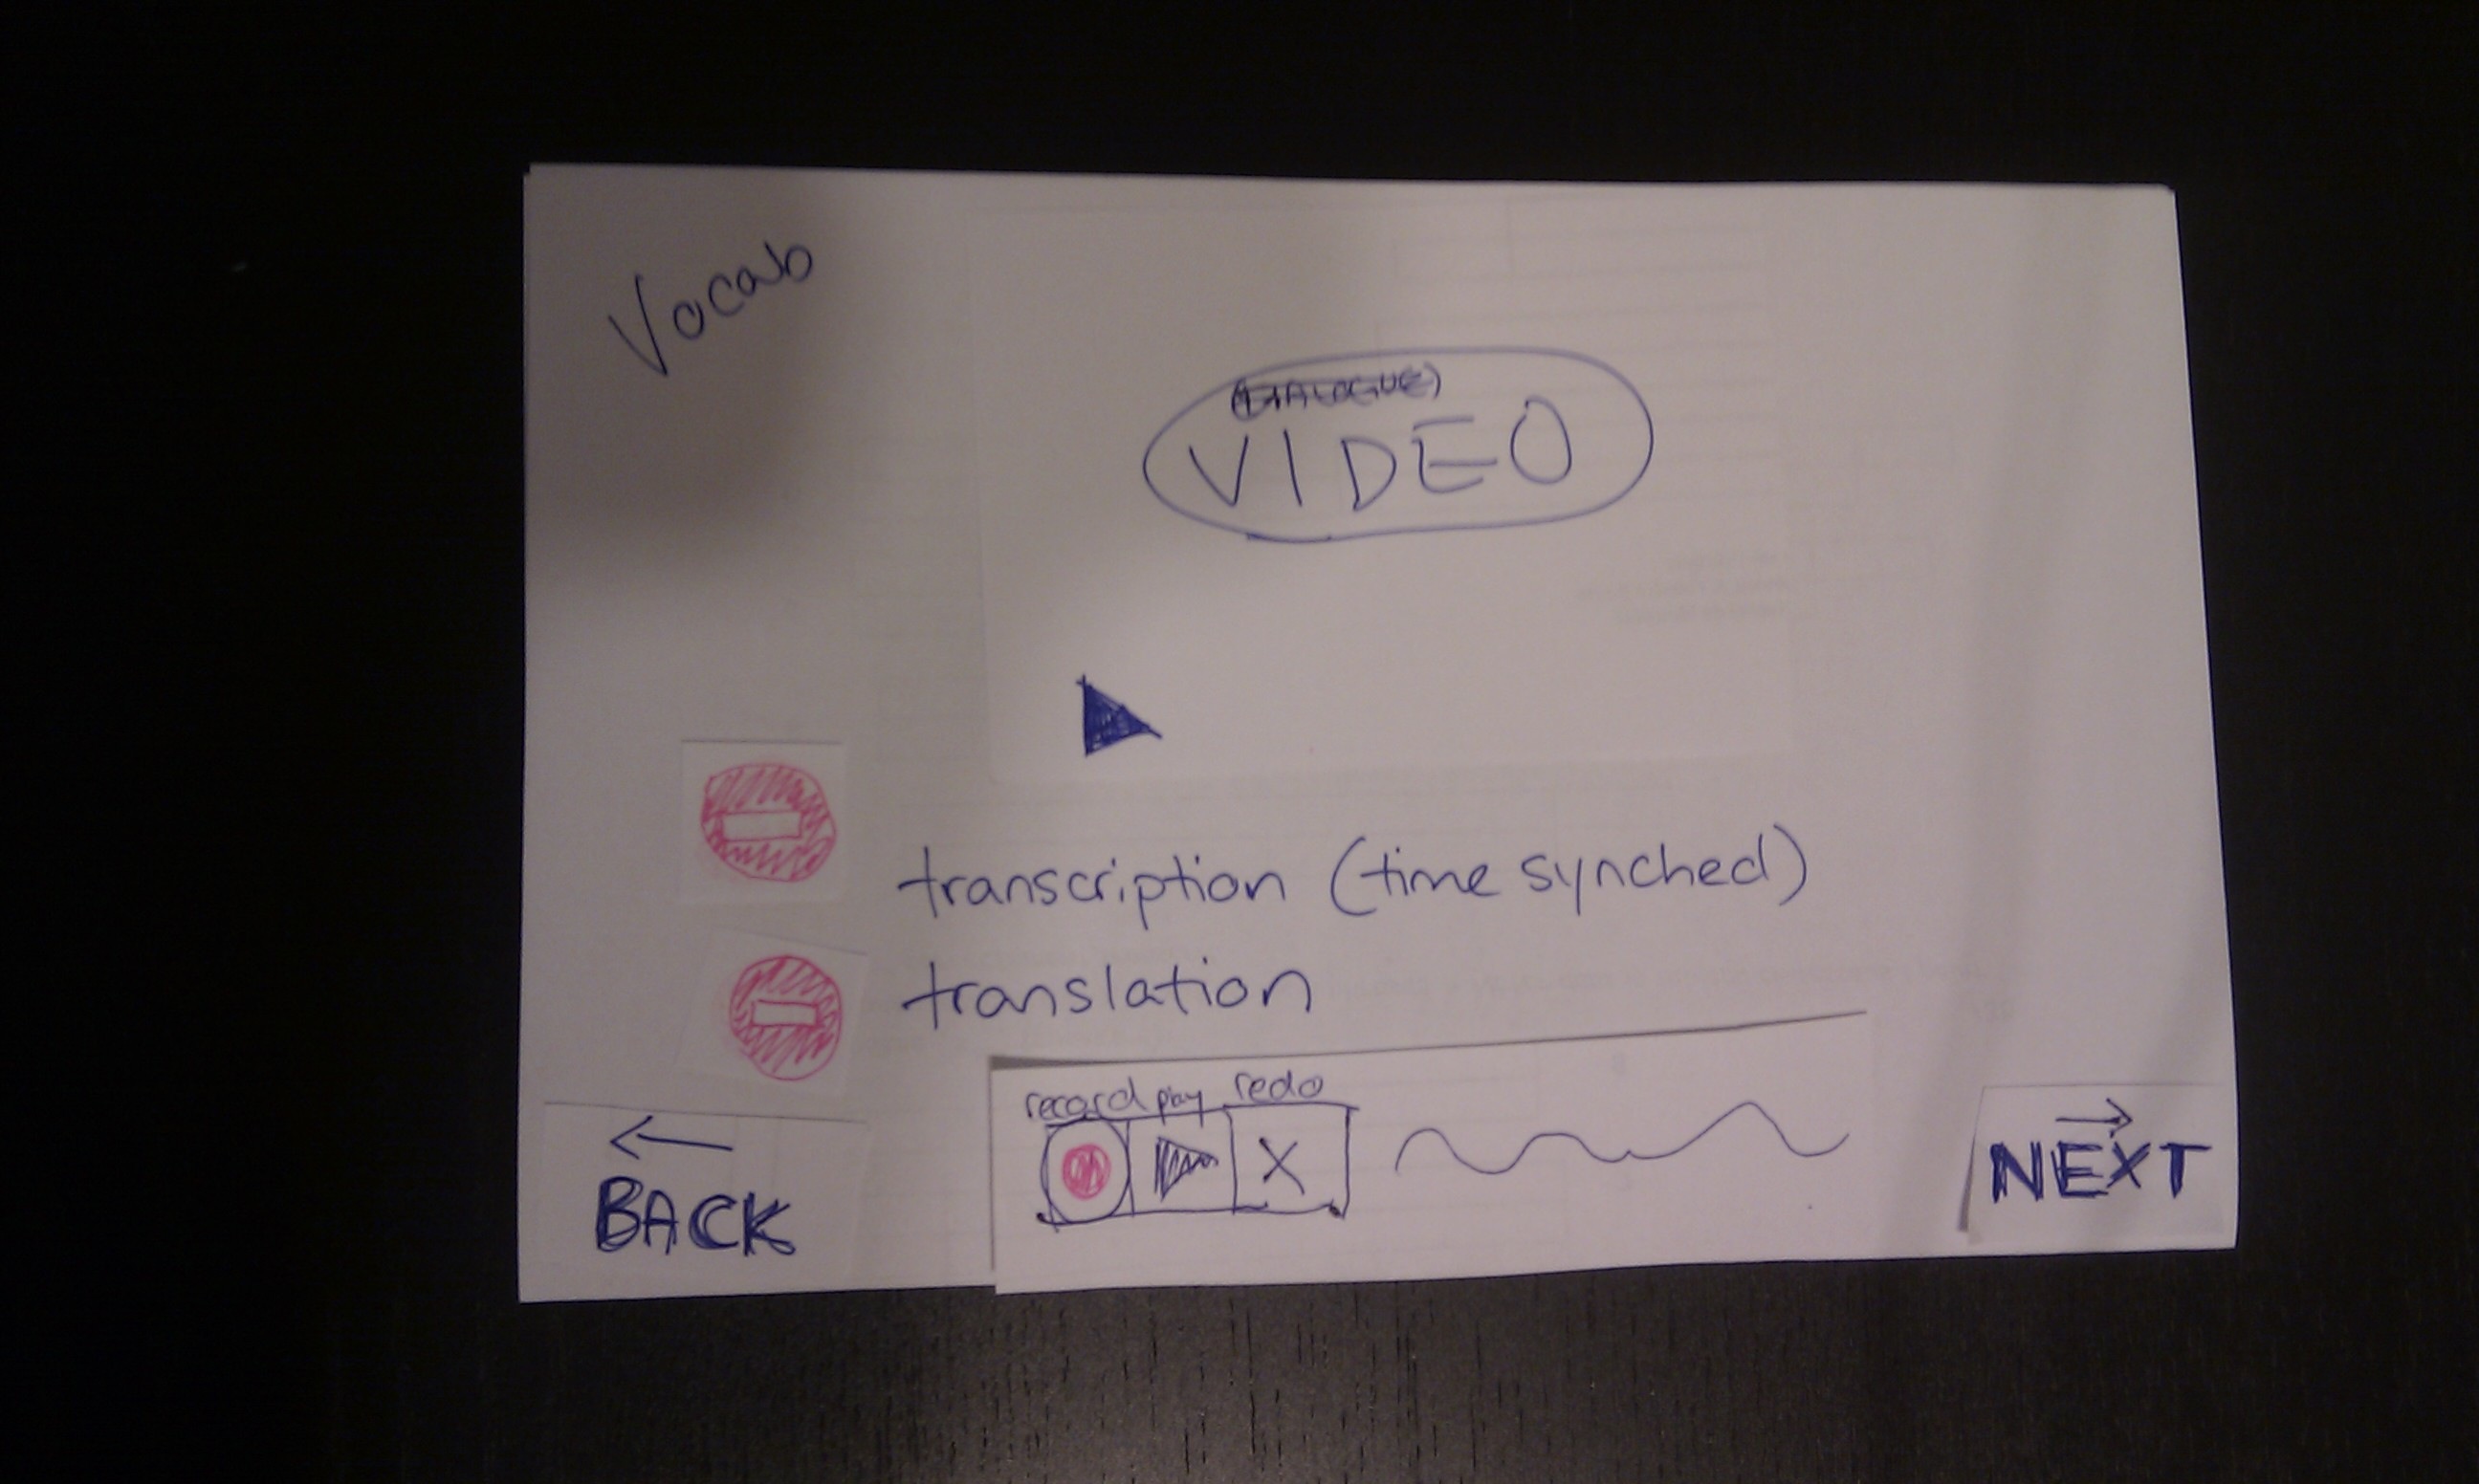 Vocab
(DIALOGUE)
VIDEO
transcription (time synched)
translation
record play redo
X
BACK
NEXT